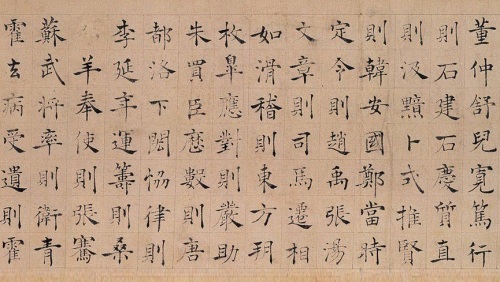 董仲舒兒寬篤行
則石建石慶質直
則汲黯卜式推賢
則韓安國鄭當時
定令則趙禹張湯
文章則司馬遷相
如滑稽則東方朔
枚皐應對則嚴助
朱買臣厯數則唐
都洛下閎恊律則
李延年運籌則桑
羊奉使則張騫
蘇武將率則衛青
霍去病受遺則霍